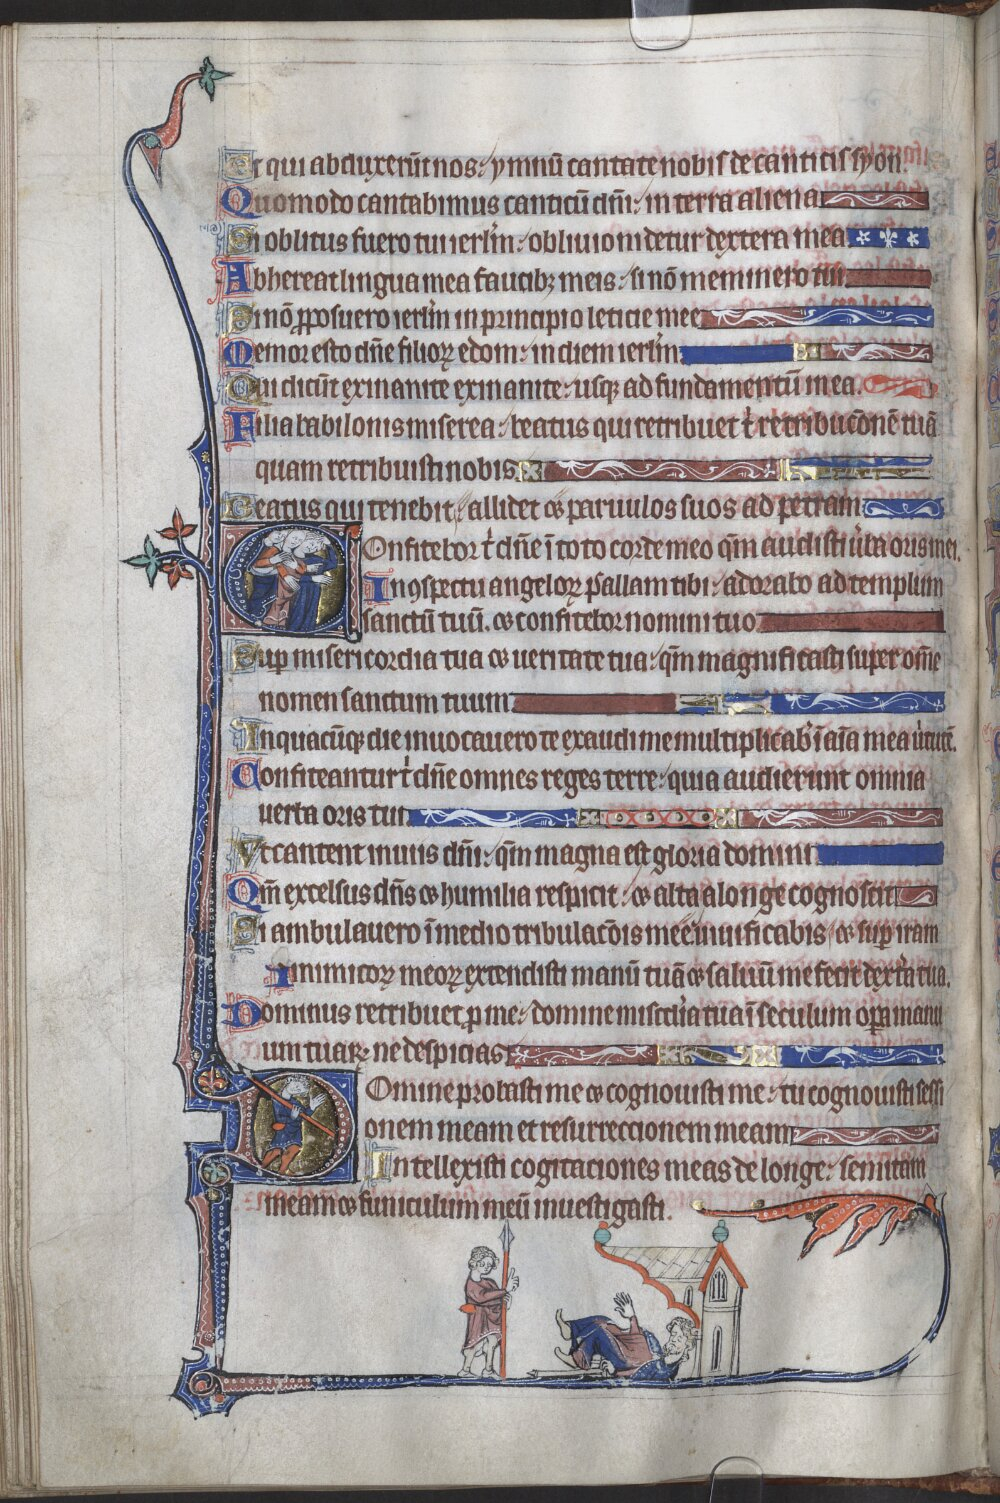 Et qui abduxerūt nos : ymnū cantate nobis de canticis syon.
Quomodo cantabimus canticū dn̄i : in terra aliena
Si oblitus fuero tui ierl̄m : obliuioni detur dextera mea
Adhereat lingua mea faucibꝫ meis : si nō meminero tui.
Si nō ꝓposuero ierl̄m in principio leticie mee
Memor esto dn̄e filioꝝ edom : in diem ierl̄m
Qui dicūt exinanite exinanite : usqꝫ ad fundamentū in ea.
Filia babilonis misera : beatus qui retribuet t̄ retribuc̄onē tuā
quam retribuisti nobis
Beatus qui tenebit : allidet ⁊ paruulos suos ad petram
Confitebor t̄ dn̄e ī toto corde meo qm̄ audisti ūba oris mei.
In ꝯspectu angeloꝝ psallam tibi : adorabo ad templum
sanctū tuū. ⁊ confitebor nomini tuo
Sup misericordia tua ⁊ ueritate tua : qm̄ magnificasti super om̄e
nomen sanctum tuum
In quacūqꝫ die inuocauero te exaudi me multiplicab̄ ī aīa mea ūtutē.
Confiteantur t̄ dn̄e omnes reges terre : quia audierunt omnia
uerba oris tui
Et cantent in uiis dn̄i : qm̄ magna est gloria domini
Qm̄ excelsus dn̄s ⁊ humilia respicit : ⁊ alta a longe cognoscit
Si ambulauero ī medio tribulac̄ois meē uiuificabis : ⁊ sup iram
inimicoꝝ meoꝝ extendisti manū tuā ⁊ saluū me fecit dext̄a tua.
Dominus retribuet ꝑ me : domine mis̄cdia tua ī seculum oꝑa manu
um tuaꝝ ne despicias
Domine probasti me ⁊ cognouisti me : tu cognouisti sessi
onem meam et resurreccionem meam
Intellexisti cogitaciones meas de longe : semitam
meam ⁊ funiculum meū inuestigasti.